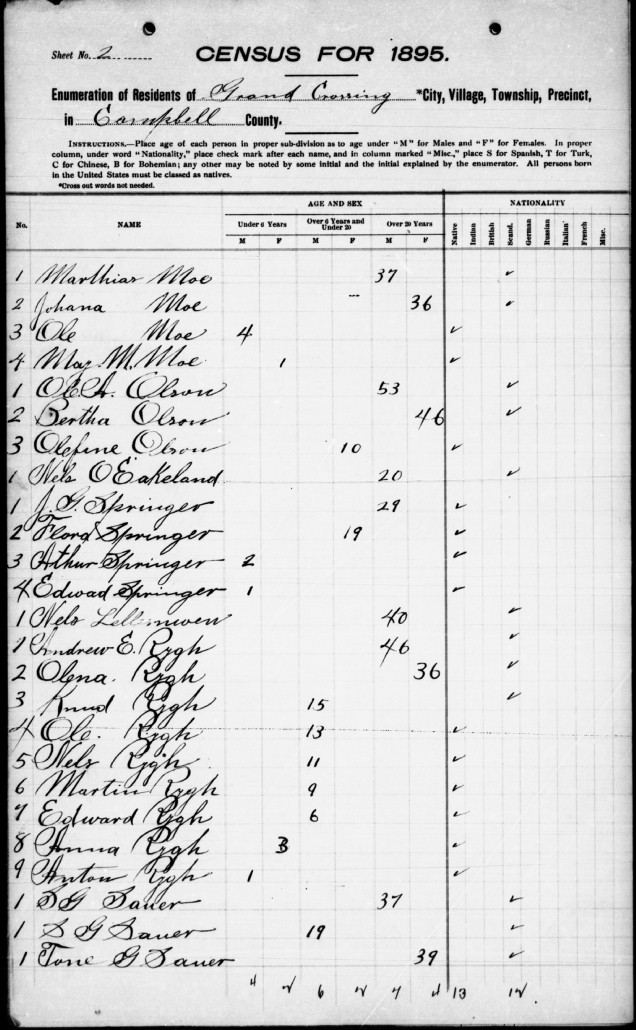 Sheet No. 2
CENSUS FOR 1895.
Enumeration of Residents of Grand Crossing *City, Village, Township, Precinct,
in Campbell County.
INSTRUCTIONS.—Place age of each person in proper sub-division as to age under "M" for Males and "F" for Females. In proper
column, under word "Nationality," place check mark after each name, and in column marked "Misc.," place S for Spanish, T for Turk,
C for Chinese, B for Bohemian; any other may be noted by some initial and the initial explained by the enumerator. All persons born
in the United States must be classed as natives.
*Cross out words not needed.
AGE AND SEX NATIONALITY
No. NAME Under 6 Years Over 6 Years and Under 20 Over 20 Years Native Indian British Scand. German Russian Italian French Misc.
M F M F M F
1 Marthias Moe 37 ✓
2 Johana Moe 36 ✓
3 Ole Moe 4 ✓
4 May. M. Moe 1 ✓
1 Ole A. Olson 53 ✓
2 Bertha Olson 46 ✓
3 Olefine Olson 10 ✓
1 Nels O Eakeland 20 ✓
1 J. G. Springer 29 ✓
2 Flora Springer 19 ✓
3 Arthur Springer 2 ✓
4 Edwad Springer 1 ✓
1 Nels 40 ✓
1 Andrew E. Rygh 46 ✓
2 Olena. Rygh 36 ✓
3 Knud Rygh 15 ✓
4 Ole. Rygh 13 ✓
5 Nels Rygh 11 ✓
6 Martin Rygh 9 ✓
7 Edward Rygh 6 ✓
8 Anna Rygh 3 ✓
9 Anton Rygh 1 ✓
1 S G Sauer 37 ✓
1 S G Sauer 19 ✓
1 Tone G Sauer 39 ✓
4 2 6 2 7 4 13 12